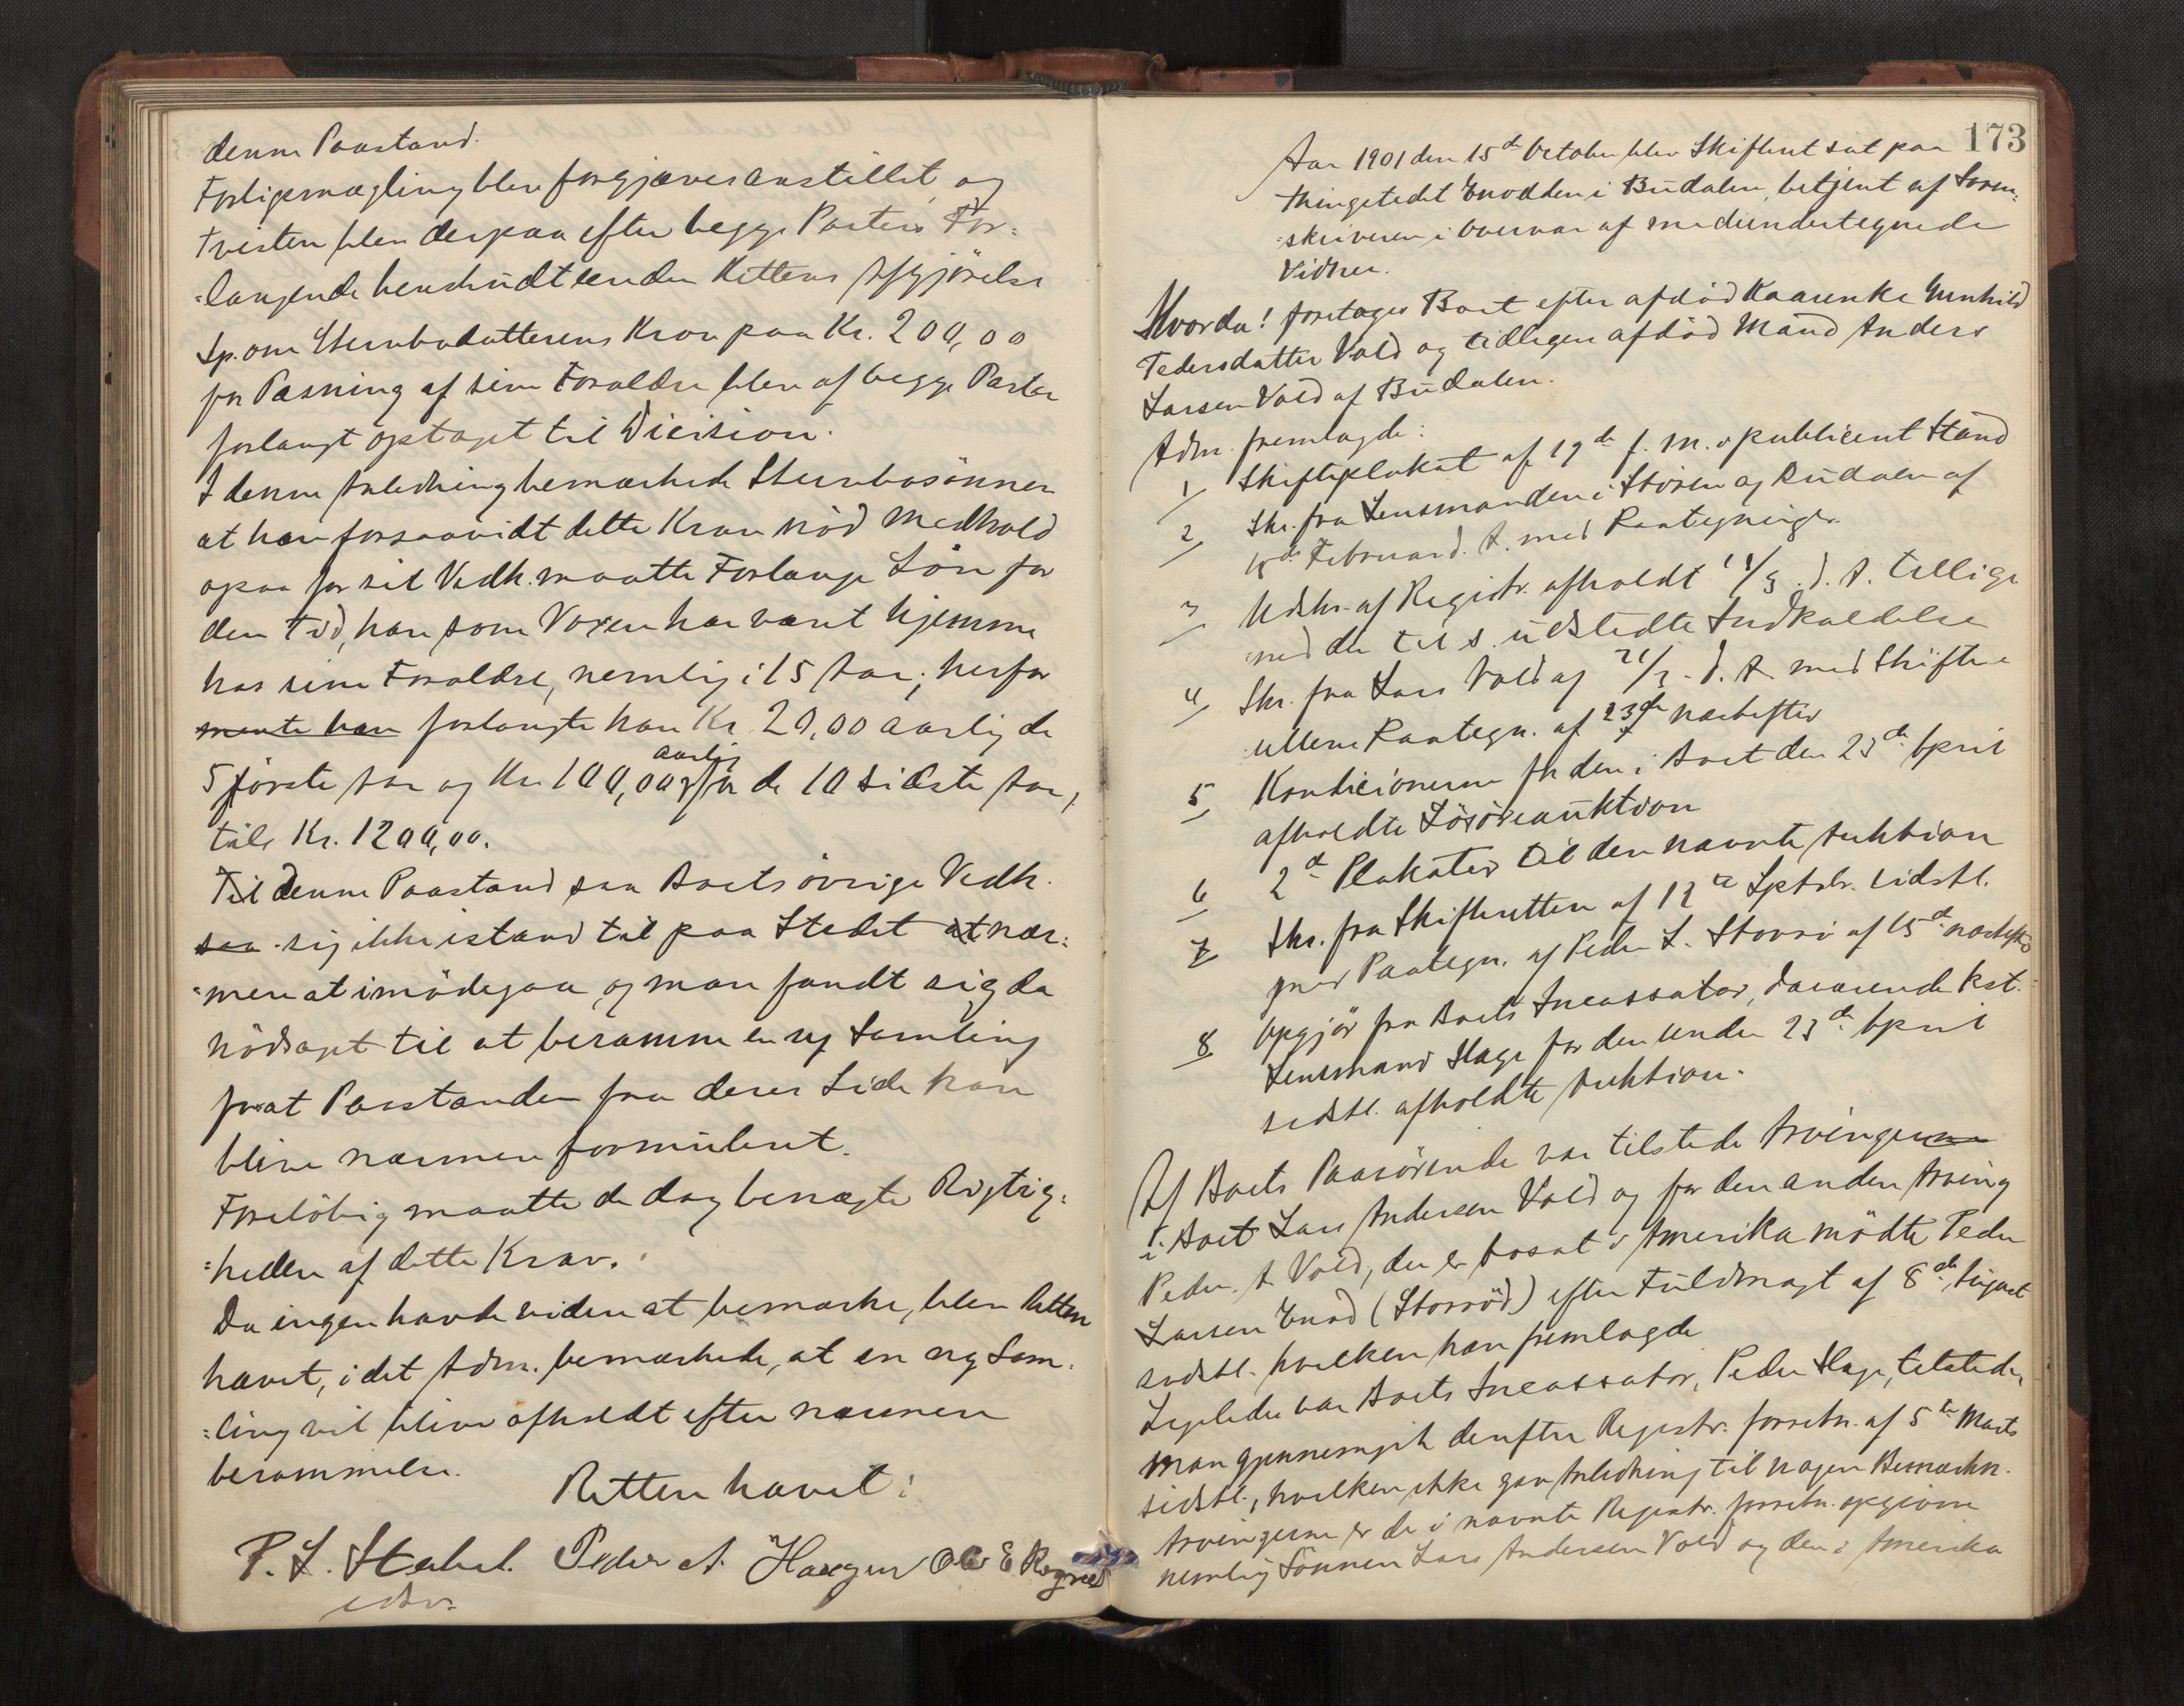 denne Paastand.
Forligsmægling blev forgjæves anstillet, og
Tvisten blev derpaa efter begge Parters For-
-langende henskudt under Rettens Afgjörelse
Sp. om Stervbodatterens Krav paa Kr. 200,00
for Pasning af sine Forældre blev af begge Parter
forlangt optaget til Dicision.
I denne Anledning bemærkede Stervbosönnen
at han forsaavidt dette Krav nöd Medhold
ogsaa for sit Vedk. maatte Forlange Lön for
den Tid, han som Voxen har været hjemme
hos sine Forældre, nemlig i 15 Aar; herfor
mente han forlangte han Kr. 20,00 aarlig de
5 förste Aar og Kr. 100,00 aarlig for de 10 sidste Aar,
tils Kr. 1200,00.
Til denne Paastand saa Boets övrige Vedk.
saa sig ikke istand til paa Stedet at nær-
-mere at imödegaa, og man fandt sig da
nödsaget til at beramme en ny Samling
for at Paastanden fra deres Side kan
blive nærmere formuleret.
Forelöbig maatte de dog benægte Rigtig-
-heden af dette Krav.
Da ingen havde videre at bemærke, blev Retten
hævet, idet Adm. bemærkede, at en ny Sam-
-ling vil blive afholdt efter nærmere
berammelse.
Retten hævet:
P. L. Stabel. Peder A. Haugen Ole E Rognes
edsv.
173
Aar 1901 den 15de October blev Skifteret sat paa
Thingstedet Enodden i Budalen, betjent af Soren-
-skriveren i Overvær af medundertegnede
Vidner.
Hvorda! foretages Boet efter afdöd Kaarenke Gunhild
Pedersdatter Vold og tidligere afdöd Mand Anders
Larsen Vold af Budalen.
Adm. fremlagde:
1/ Skifteplakat af 19de f. M. publiceret Stand
2/ Skr. fra Lensmanden i Stören og Budalen af
18de Februar d. A. med Paategninger.
3/ Udskr. af Registr. afholdt 18/3 d. A. tillige
med de til s. udstedte Indkaldelse
4/ Skr. fra Lars Vold af 21/3 d. A. med Skifte-
rettens Paategn. af 23de næstefter
5 Konditionerne for den i Boet den 23de April
afholdte Lösöreauktion
6 2de Plakater til den nævnte Auktion
7 Skr. fra Skifteretten af 12te Septbr. sidstl.
med Paategn. af Peder L. Storrö af 15de næstefter
8 Opgjör fra Boets Incassator, daværende kst.
Lensmand Hage for den under 23de April
sidstl. afholdte Auktion.
Af Boets Paarörende var tilstede Arvingerne
i Boet Lars Andersen Vold og for den anden Arving
Peder A Vold, der er bosat i Amerika mödte Peder
Larsen Enod (Storröd) efter Fuldmagt af 8de August
sidstl. hvilken han fremlagde
Ligeledes var Boets Incassator, Peder Hage, tilstede,
Man gjennemgik derefter Registr. forretn. af 5te Marts
sidstl., hvilken ikke gav Anledning til nogen Bemærkn.
Arvingerne er de i nævnte Registr. forretn. opgivne
nemlig Sönnen Lars Andersen Vold og den i Amerika